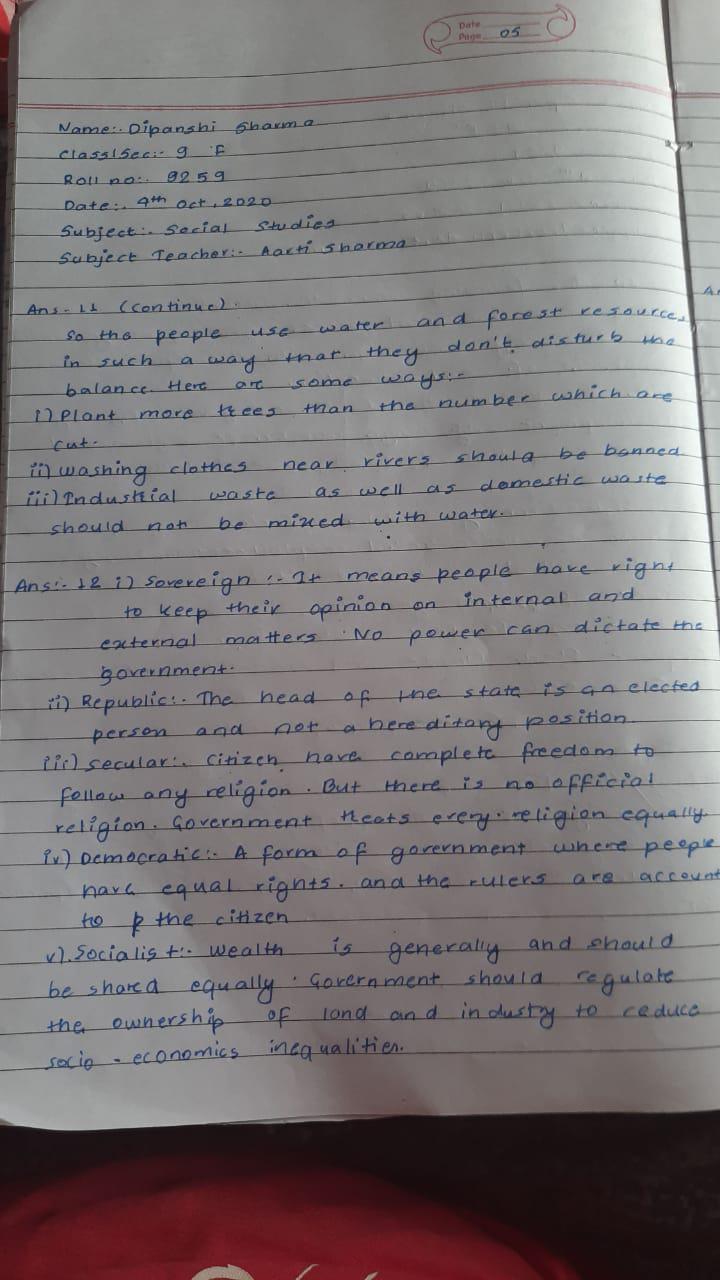 Date
Page 05
Name:- Dipanshi Sharma
Class/Sec:- 9 F
Roll no:- 9259
Date:- 9th Oct, 2020
Subject:- Social Studies
Subject Teacher:- Aarti Sharma
Ans-11 (continue).
So the people use water and forest resources
in such a way that they don't disturb the
balance. Here are some ways:-
i) Plant more trees than the number which are
cut.
ii) Washing clothes near rivers should be banned
iii) Industrial waste as well as domestic waste
should not be mixed with water.
Ans:- 12 i) Sovereign :- It means people have right
to keep their opinion on internal and
external matters. No power can dictate the
government.
ii) Republic:- The head of the state is an elected
person and not a hereditary position
iii) Secular:- Citizen have complete freedom to
follow any religion. But there is no official
religion. Government treats every religion equally
iv) Democratic:- A form of government where people
have equal rights. and the rulers are account
to the citizen
v). Socialist:- Wealth is generally and should
be shared equally. Government should regulate
the ownership of land and industry to reduce
socio-economics inequalities.